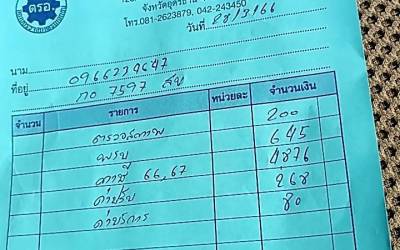 ตรอ.
จังหวัดอุดรธานี
โทร.081-2623879, 042-243450
วันที่ 28/3/66
นาม 0966239647
ที่อยู่ กอ 7597
จำนวน รายการ หน่วยละ จำนวนเงิน
ตรวจสภาพ 200
พรบ 645
ภาษี 66,67 4876
ค่าปรับ 268
ค่าบริการ 80